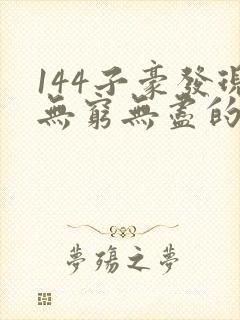 144子豪發現
無窮無盡的
夢殤之夢